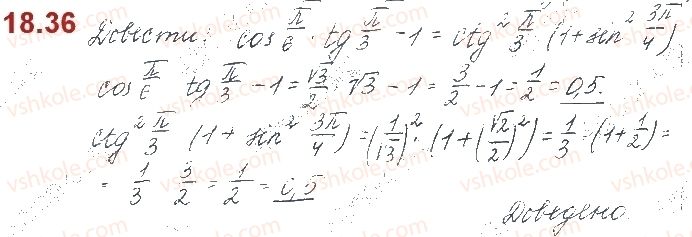 18.36 Довести: cos π/6 · tg π/3 - 1 = ctg² π/3 · (1 + sin² 3π/4)
cos π/6 · tg π/3 - 1 = √3/2 · √3 - 1 = 3/2 - 1 = 1/2 = 0,5.
ctg² π/3 · (1 + sin² 3π/4) = (1/√3)² · (1 + (√2/2)²) = 1/3 · (1 + 1/2) =
= 1/3 · 3/2 = 1/2 = 0,5
Доведено.